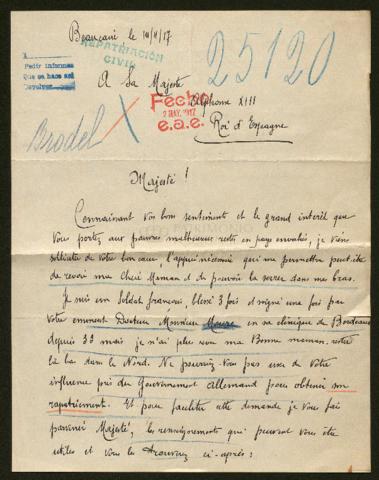 Beaucaire le 14/4/17
25120
REPATRIACIÓN
CIVIL
Pedir informes
Que se hace así
Devolver
A Sa Majesté
Alphonse XIII
Fecho
2 MAY. 1917
e.a.e.
Roi d'Espagne
Brodel
Majesté !
Connaissant vos bons sentiments et le grand interêt que
vous portez aux pauvres malheureux restés en pays envahis, je viens
solliciter de votre bon cœur, l'appui nécessaire qui me permettra peut-être
de revoir ma chère Maman et de pouvoir la serrer dans mes bras.
Je suis un soldat français, blessé 3 fois et soigné une fois par
votre eminent Docteur Monsieur en sa clinique de Bordeaux
depuis 32 mois je n'ai plus revu ma Bonne maman, restée
là bas dans le Nord. Ne pourriez-vous pas user de votre
influence près du Gouvernement Allemand pour obtenir son
rapatriement. Et pour faciliter cette demande je vous fais
parvenir Majesté, les renseignements qui peuvent vous être
utiles et vous les trouverez ci-après :